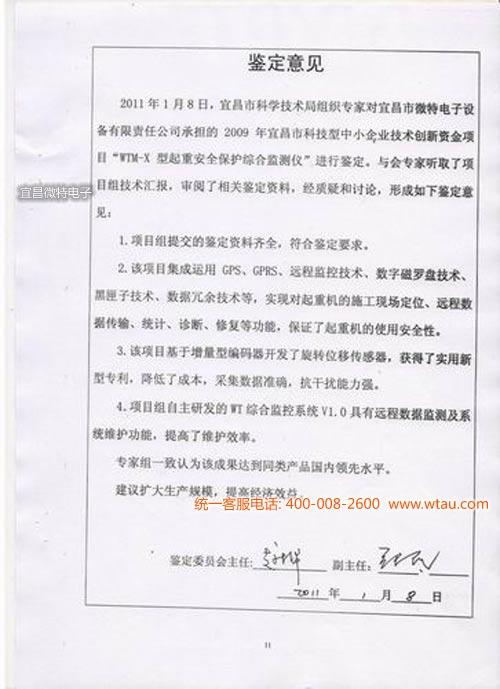 鉴定意见
2011年1月8日，宜昌市科学技术局组织专家对宜昌市微特电子设
备有限责任公司承担的 2009 年宜昌市科技型中小企业技术创新资金项
目“WTM-X 型起重安全保护综合监测仪”进行鉴定。与会专家听取了项
目组技术汇报，审阅了相关鉴定资料，经质疑和讨论，形成如下鉴定意
见：
宜昌微特电子
1.项目组提交的鉴定资料齐全，符合鉴定要求。
2.该项目集成运用 GPS、GPRS、远程监控技术、数字磁罗盘技术、
黑匣子技术、数据冗余技术等，实现对起重机的施工现场定位、远程数
据传输、统计、诊断、修复等功能，保证了起重机的使用安全性。
3.该项目基于增量型编码器开发了旋转位移传感器，获得了实用新
型专利，降低了成本，采集数据准确，抗干扰能力强。
4.项目组自主研发的 WT 综合监控系统 V1.0 具有远程数据监测及系
统维护功能，提高了维护效率。
专家组一致认为该成果达到同类产品国内领先水平。
建议扩大生产规模，提高经济效益。
统一客服电话: 400-008-2600 www.wtau.com
鉴定委员会主任: 副主任:
2011 年 1 月 8 日
11